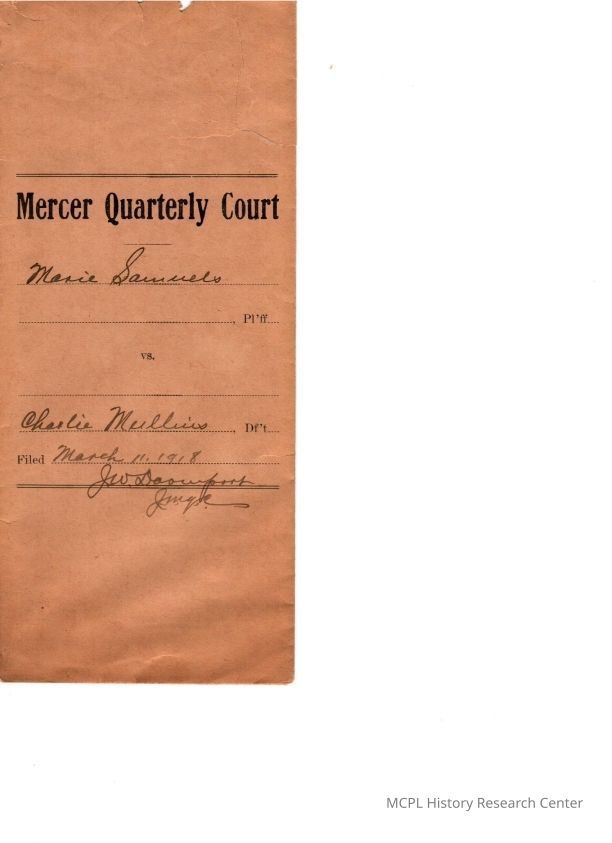 Mercer Quarterly Court
Marie Samuels
, Pl'ff
vs.
Charlie Mullins , Df't
Filed March 11, 1918
J.W. Davenport
MCPL History Research Center